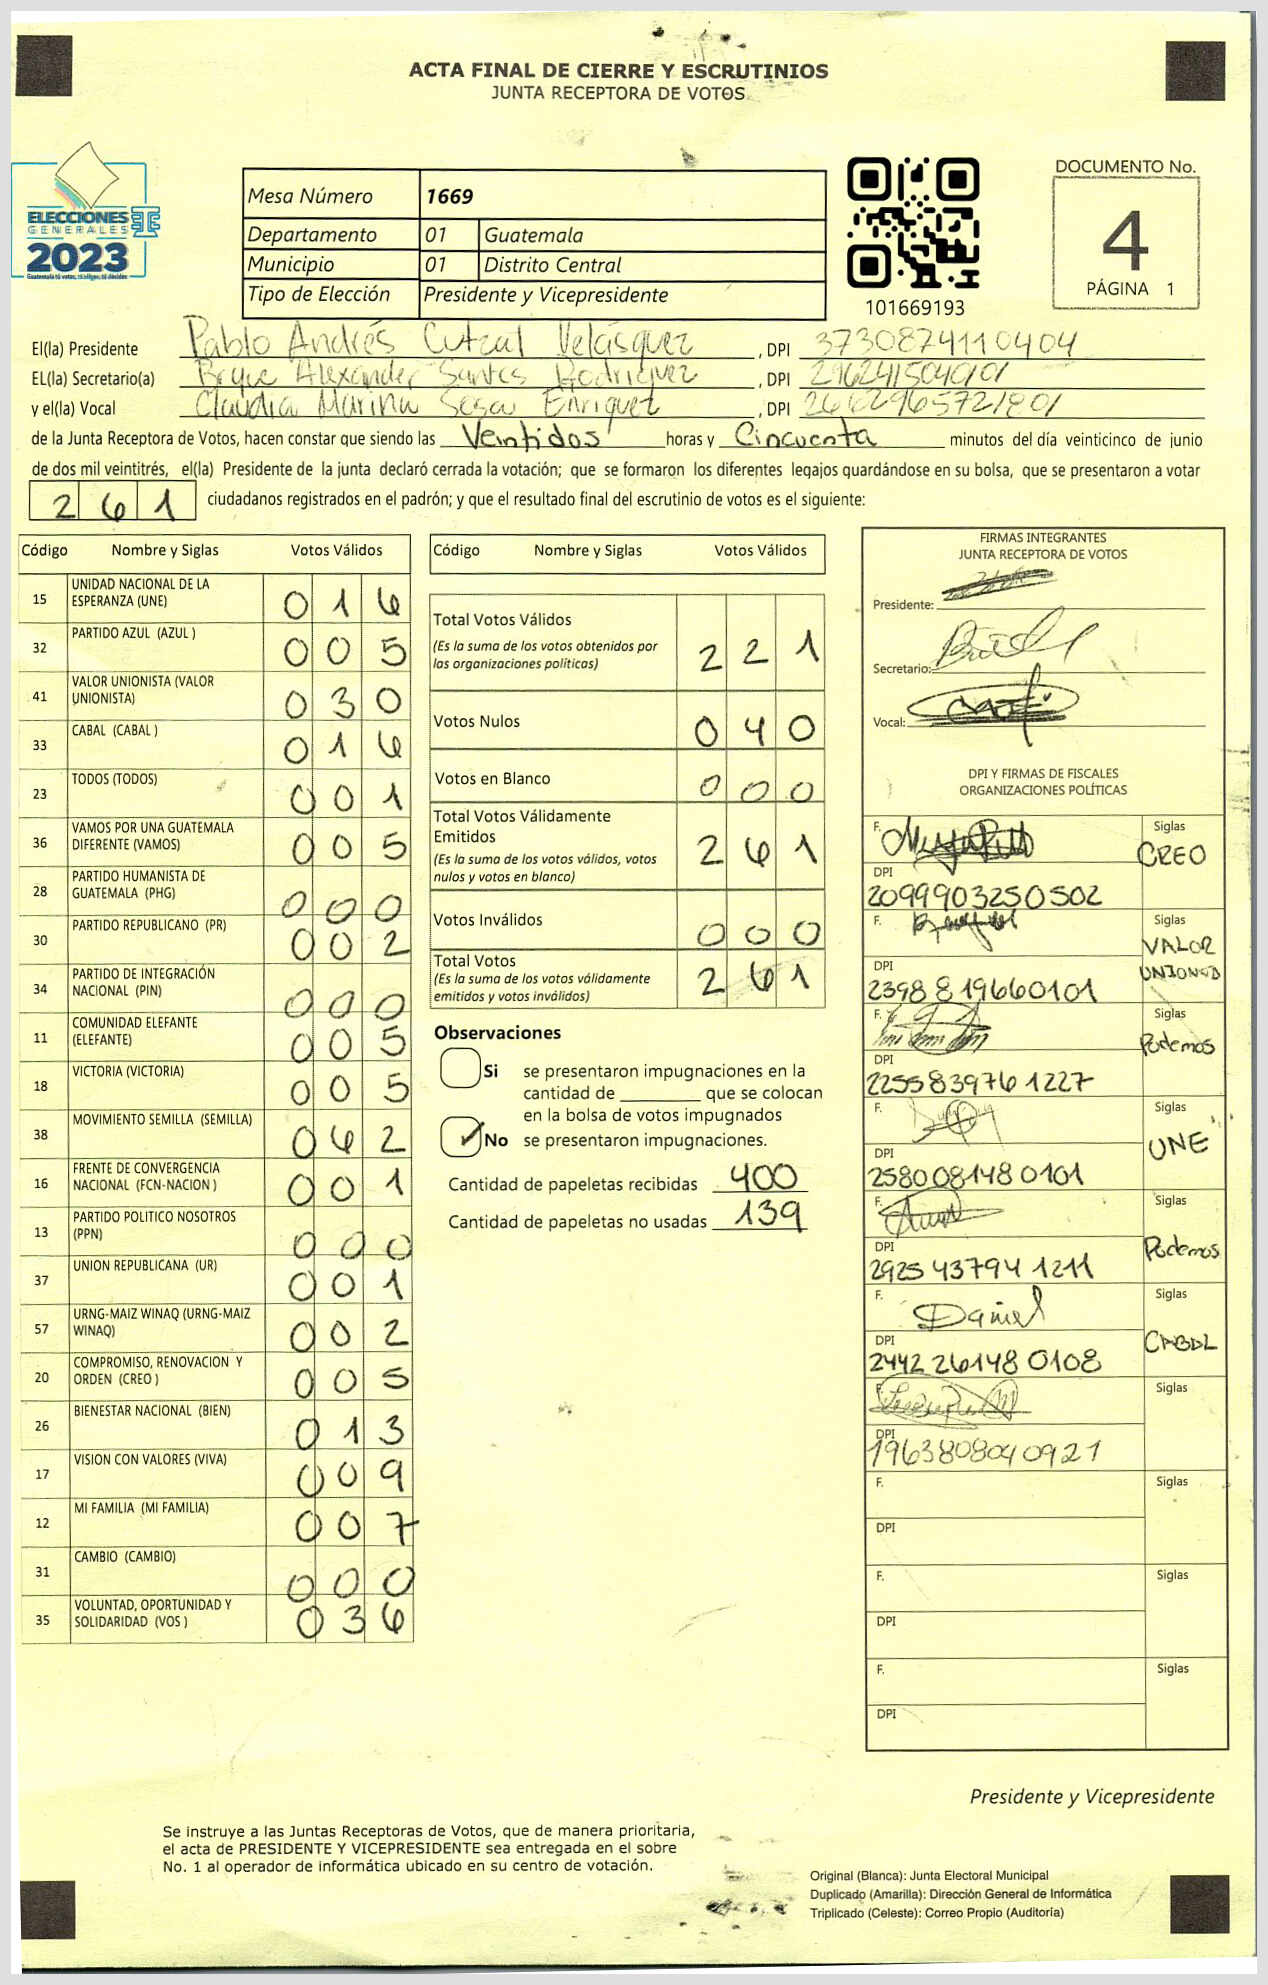 ACTA FINAL DE CIERRE Y ESCRUTINIOS
JUNTA RECEPTORA DE VOTOS
ELECCIONES
GENERALES
2023
Guatemala tú votas, tú eliges, tú decides
Mesa Número 1669
Departamento 01 Guatemala
Municipio 01 Distrito Central
Tipo de Elección Presidente y Vicepresidente
101669193
DOCUMENTO No.
4
PÁGINA 1
El(la) Presidente Pablo Andrés Cutzal Velásquez, DPI 3730874110404
EL(la) Secretario(a) Alexander Santos Rodriguez, DPI
y el(la) Vocal Claudia Marina Enriquez, DPI 2662965721801
de la Junta Receptora de Votos, hacen constar que siendo las Veintidos horas y Cincuenta minutos del día veinticinco de junio
de dos mil veintitrés, el(la) Presidente de la junta declaró cerrada la votación; que se formaron los diferentes legajos guardándose en su bolsa, que se presentaron a votar
261 ciudadanos registrados en el padrón; y que el resultado final del escrutinio de votos es el siguiente:
Código Nombre y Siglas Votos Válidos
15 UNIDAD NACIONAL DE LA
ESPERANZA (UNE) 016
32 PARTIDO AZUL (AZUL ) 005
41 VALOR UNIONISTA (VALOR
UNIONISTA) 030
33 CABAL (CABAL ) 016
23 TODOS (TODOS) 001
36 VAMOS POR UNA GUATEMALA
DIFERENTE (VAMOS) 005
28 PARTIDO HUMANISTA DE
GUATEMALA (PHG) 000
30 PARTIDO REPUBLICANO (PR) 002
34 PARTIDO DE INTEGRACIÓN
NACIONAL (PIN) 000
11 COMUNIDAD ELEFANTE
(ELEFANTE) 005
18 VICTORIA (VICTORIA) 005
38 MOVIMIENTO SEMILLA (SEMILLA) 062
16 FRENTE DE CONVERGENCIA
NACIONAL (FCN-NACION ) 001
13 PARTIDO POLITICO NOSOTROS
(PPN) 000
37 UNION REPUBLICANA (UR) 001
57 URNG-MAIZ WINAQ (URNG-MAIZ
WINAQ) 002
20 COMPROMISO, RENOVACION Y
ORDEN (CREO ) 005
26 BIENESTAR NACIONAL (BIEN) 013
17 VISION CON VALORES (VIVA) 009
12 MI FAMILIA (MI FAMILIA) 007
31 CAMBIO (CAMBIO) 000
35 VOLUNTAD, OPORTUNIDAD Y
SOLIDARIDAD (VOS ) 036
Código Nombre y Siglas Votos Válidos
Total Votos Válidos
(Es la suma de los votos obtenidos por
las organizaciones políticas) 221
Votos Nulos 040
Votos en Blanco 000
Total Votos Válidamente
Emitidos
(Es la suma de los votos válidos, votos
nulos y votos en blanco) 261
Votos Inválidos 000
Total Votos
(Es la suma de los votos válidamente
emitidos y votos inválidos) 261
Observaciones
Si se presentaron impugnaciones en la
cantidad de ________ que se colocan
en la bolsa de votos impugnados
No se presentaron impugnaciones.
Cantidad de papeletas recibidas 400
Cantidad de papeletas no usadas 139
FIRMAS INTEGRANTES
JUNTA RECEPTORA DE VOTOS
Presidente:
Secretario:
Vocal:
DPI Y FIRMAS DE FISCALES
ORGANIZACIONES POLÍTICAS
F. Siglas
CREO
DPI
2099903250502
F. Siglas
VALOR
DPI
2398819660101
F. Siglas
Podemos
DPI
2255839761227
F. Siglas
UNE
DPI
2580081480101
F. Siglas
Podemos
DPI
2925437941211
F. Daniel Siglas
CABAL
DPI
2442261480108
F. Siglas
DPI
1963808040921
F. Siglas
DPI
F. Siglas
DPI
F. Siglas
DPI
Presidente y Vicepresidente
Se instruye a las Juntas Receptoras de Votos, que de manera prioritaria,
el acta de PRESIDENTE Y VICEPRESIDENTE sea entregada en el sobre
No. 1 al operador de informática ubicado en su centro de votación.
Original (Blanca): Junta Electoral Municipal
Duplicado (Amarilla): Dirección General de Informática
Triplicado (Celeste): Correo Propio (Auditoría)